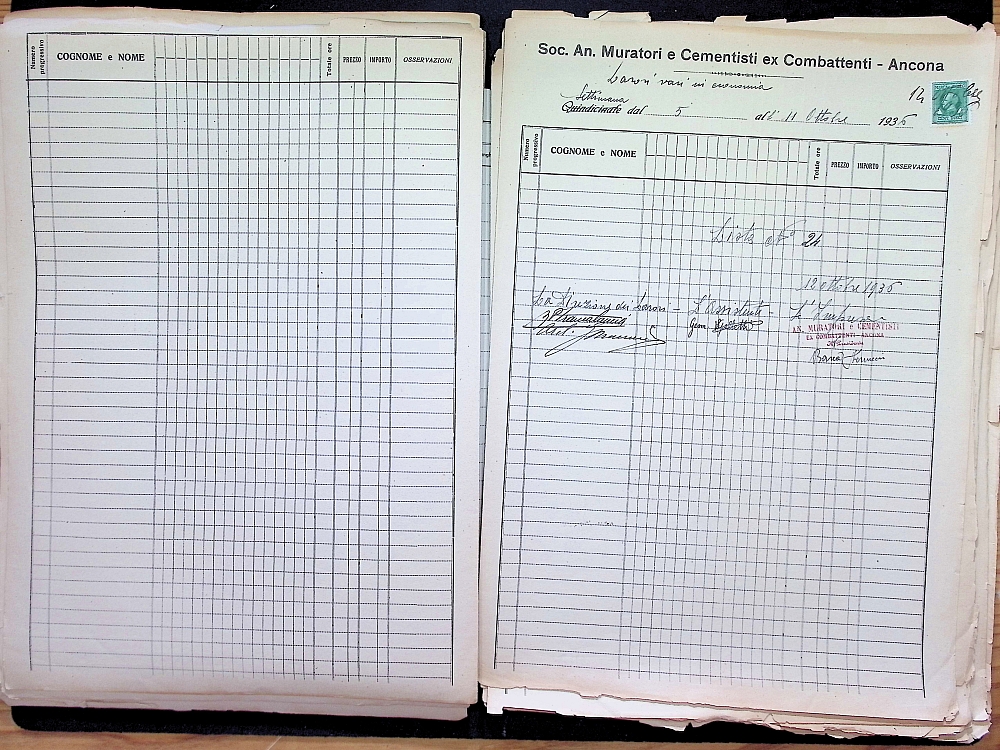 Numero progressivo COGNOME e NOME Totale ore PREZZO IMPORTO OSSERVAZIONI
Soc. An. Muratori e Cementisti ex Combattenti - Ancona
Lavori vari in economia
12
Settimana
Quindicinale dal 5 all' 11 Ottobre 1936
Numero progressivo COGNOME e NOME Totale ore PREZZO IMPORTO OSSERVAZIONI
Lista N° 24
12 ottobre 1936
La Direzione dei Lavori - L'Assistente - L'Impresa
Geom.
AN. MURATORI e CEMENTISTI
EX COMBATTENTI - ANCONA